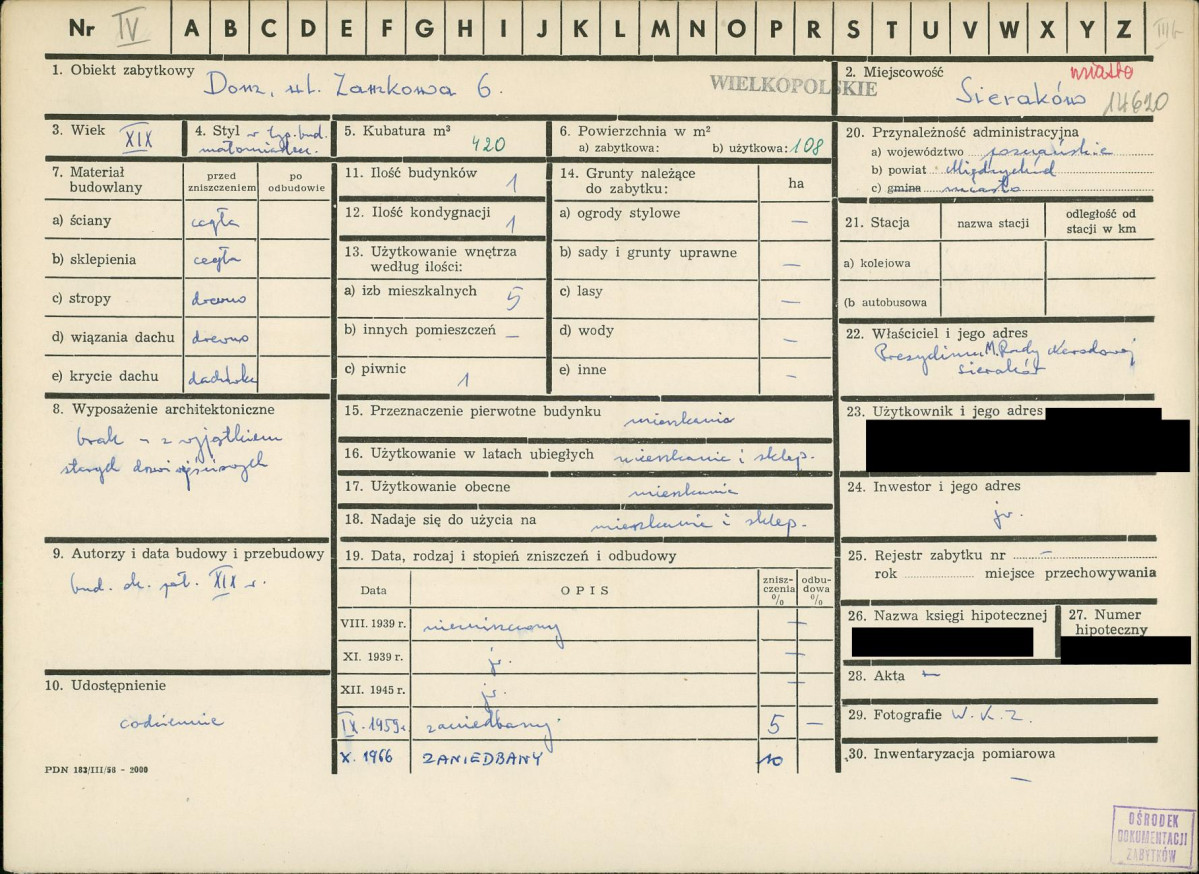 Nr IV A B C D E F G H I J K L M N O P R S T U V W X Y Z IIIb
1. Obiekt zabytkowy Dom, ul. Zamkowa 6.
WIELKOPOLSKIE
2. Miejscowość miasto
Sieraków 14620
3. Wiek XIX
4. Styl w typ. bud.
małomiast.
5. Kubatura m³
420
6. Powierzchnia w m²
a) zabytkowa: b) użytkowa: 108
7. Materiał budowlany
przed zniszczeniem
po odbudowie
a) ściany cegła
b) sklepienia cegła
c) stropy drewno
d) wiązania dachu drewno
e) krycie dachu dachówka
8. Wyposażenie architektoniczne
brak – z wyjątkiem
starych drzwi wejściowych
9. Autorzy i data budowy i przebudowy
bud. ok. poł. XIX w.
10. Udostępnienie
codziennie
PDN 183/III/58 - 2000
11. Ilość budynków 1
12. Ilość kondygnacji 1
13. Użytkowanie wnętrza
według ilości:
a) izb mieszkalnych 5
b) innych pomieszczeń –
c) piwnic 1
14. Grunty należące
do zabytku:
ha
a) ogrody stylowe –
b) sady i grunty uprawne –
c) lasy –
d) wody –
e) inne –
15. Przeznaczenie pierwotne budynku mieszkania
16. Użytkowanie w latach ubiegłych mieszkanie i sklep.
17. Użytkowanie obecne mieszkanie
18. Nadaje się do użycia na mieszkanie i sklep.
19. Data, rodzaj i stopień zniszczeń i odbudowy
Data
OPIS
znisz-
czenia
%
odbu-
dowa
%
VIII. 1939 r. niezniszczony –
XI. 1939 r. jw. –
XII. 1945 r. jw. –
IX. 1959 r. zaniedbany. 5 –
X. 1966 ZANIEDBANY 10
20. Przynależność administracyjna
a) województwo poznańskie
b) powiat Międzychód
c) gmina miasto
21. Stacja
nazwa stacji
odległość od
stacji w km
a) kolejowa
(b autobusowa
22. Właściciel i jego adres
Prezydium M. Rady Narodowej
Sieraków
23. Użytkownik i jego adres
24. Inwestor i jego adres
jw.
25. Rejestr zabytku nr –
rok miejsce przechowywania
26. Nazwa księgi hipotecznej
27. Numer
hipoteczny
28. Akta –
29. Fotografie W. K. Z.
30. Inwentaryzacja pomiarowa
–
OŚRODEK
DOKUMENTACJI
ZABYTKÓW